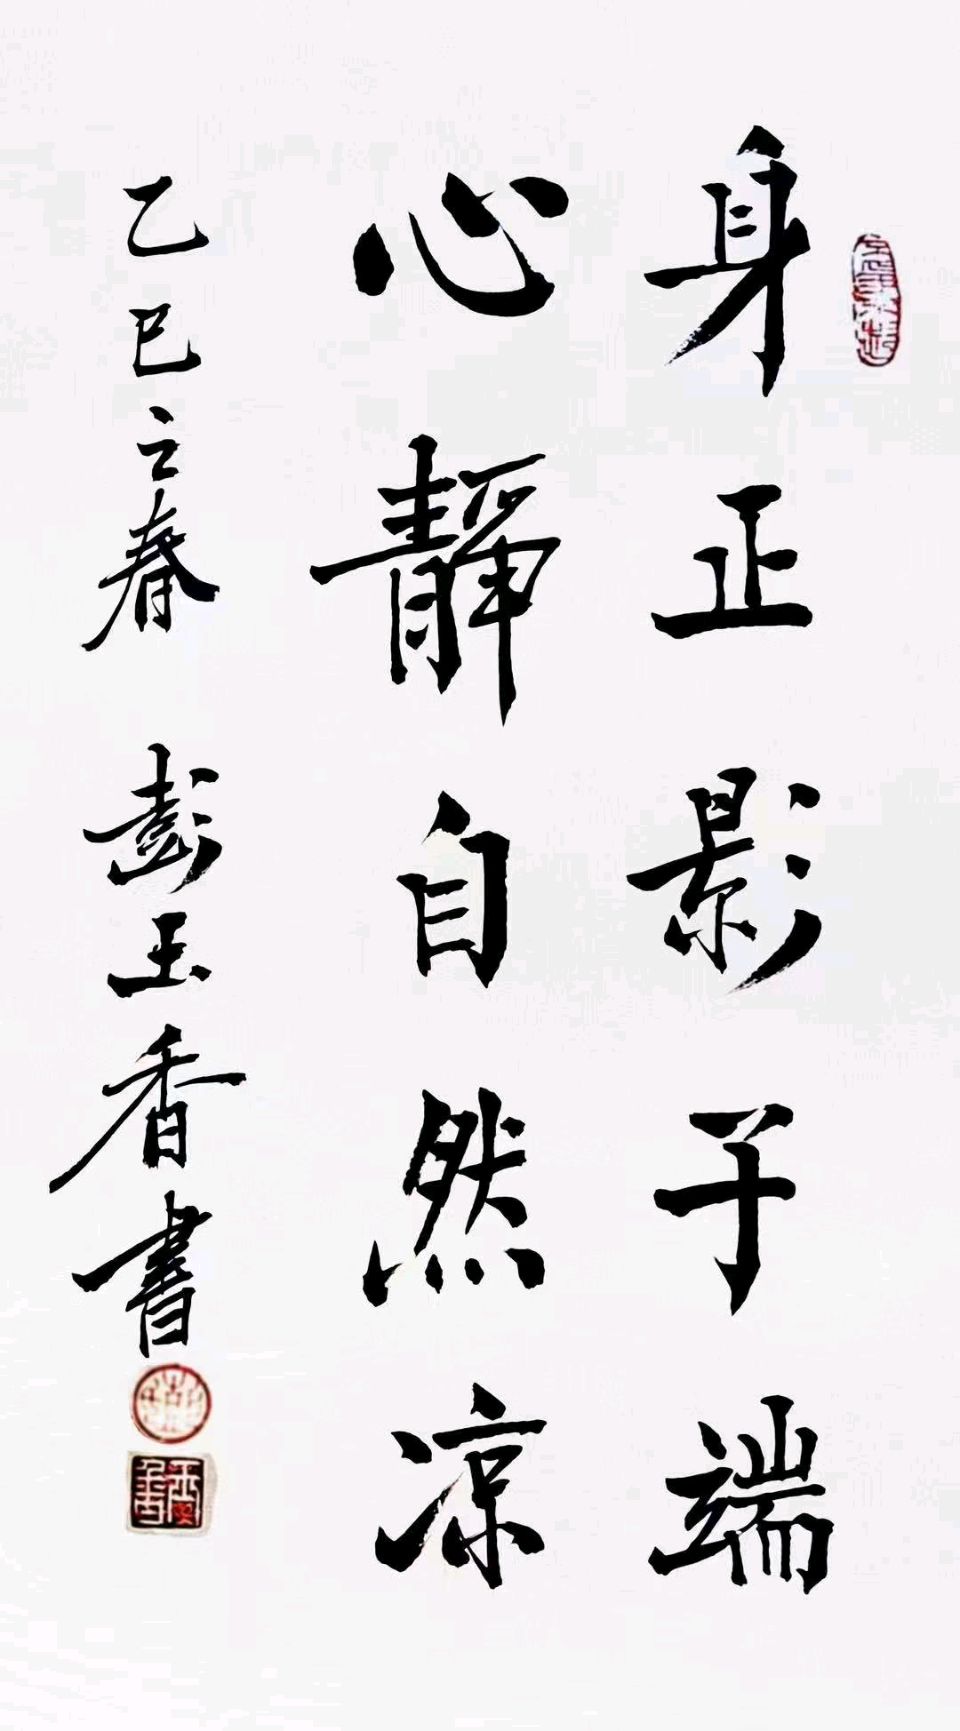 身正影子端
心靜自然凉
乙巳之春 彭玉香書